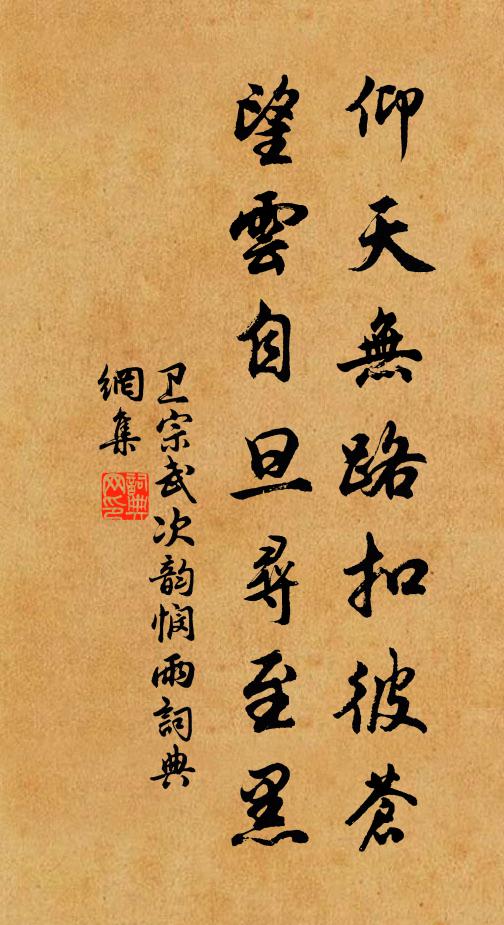 仰天無路扣彼蒼
望雲自旦尋至黑
卫宗武次韵悯雨詞典
網集
詞典
网印